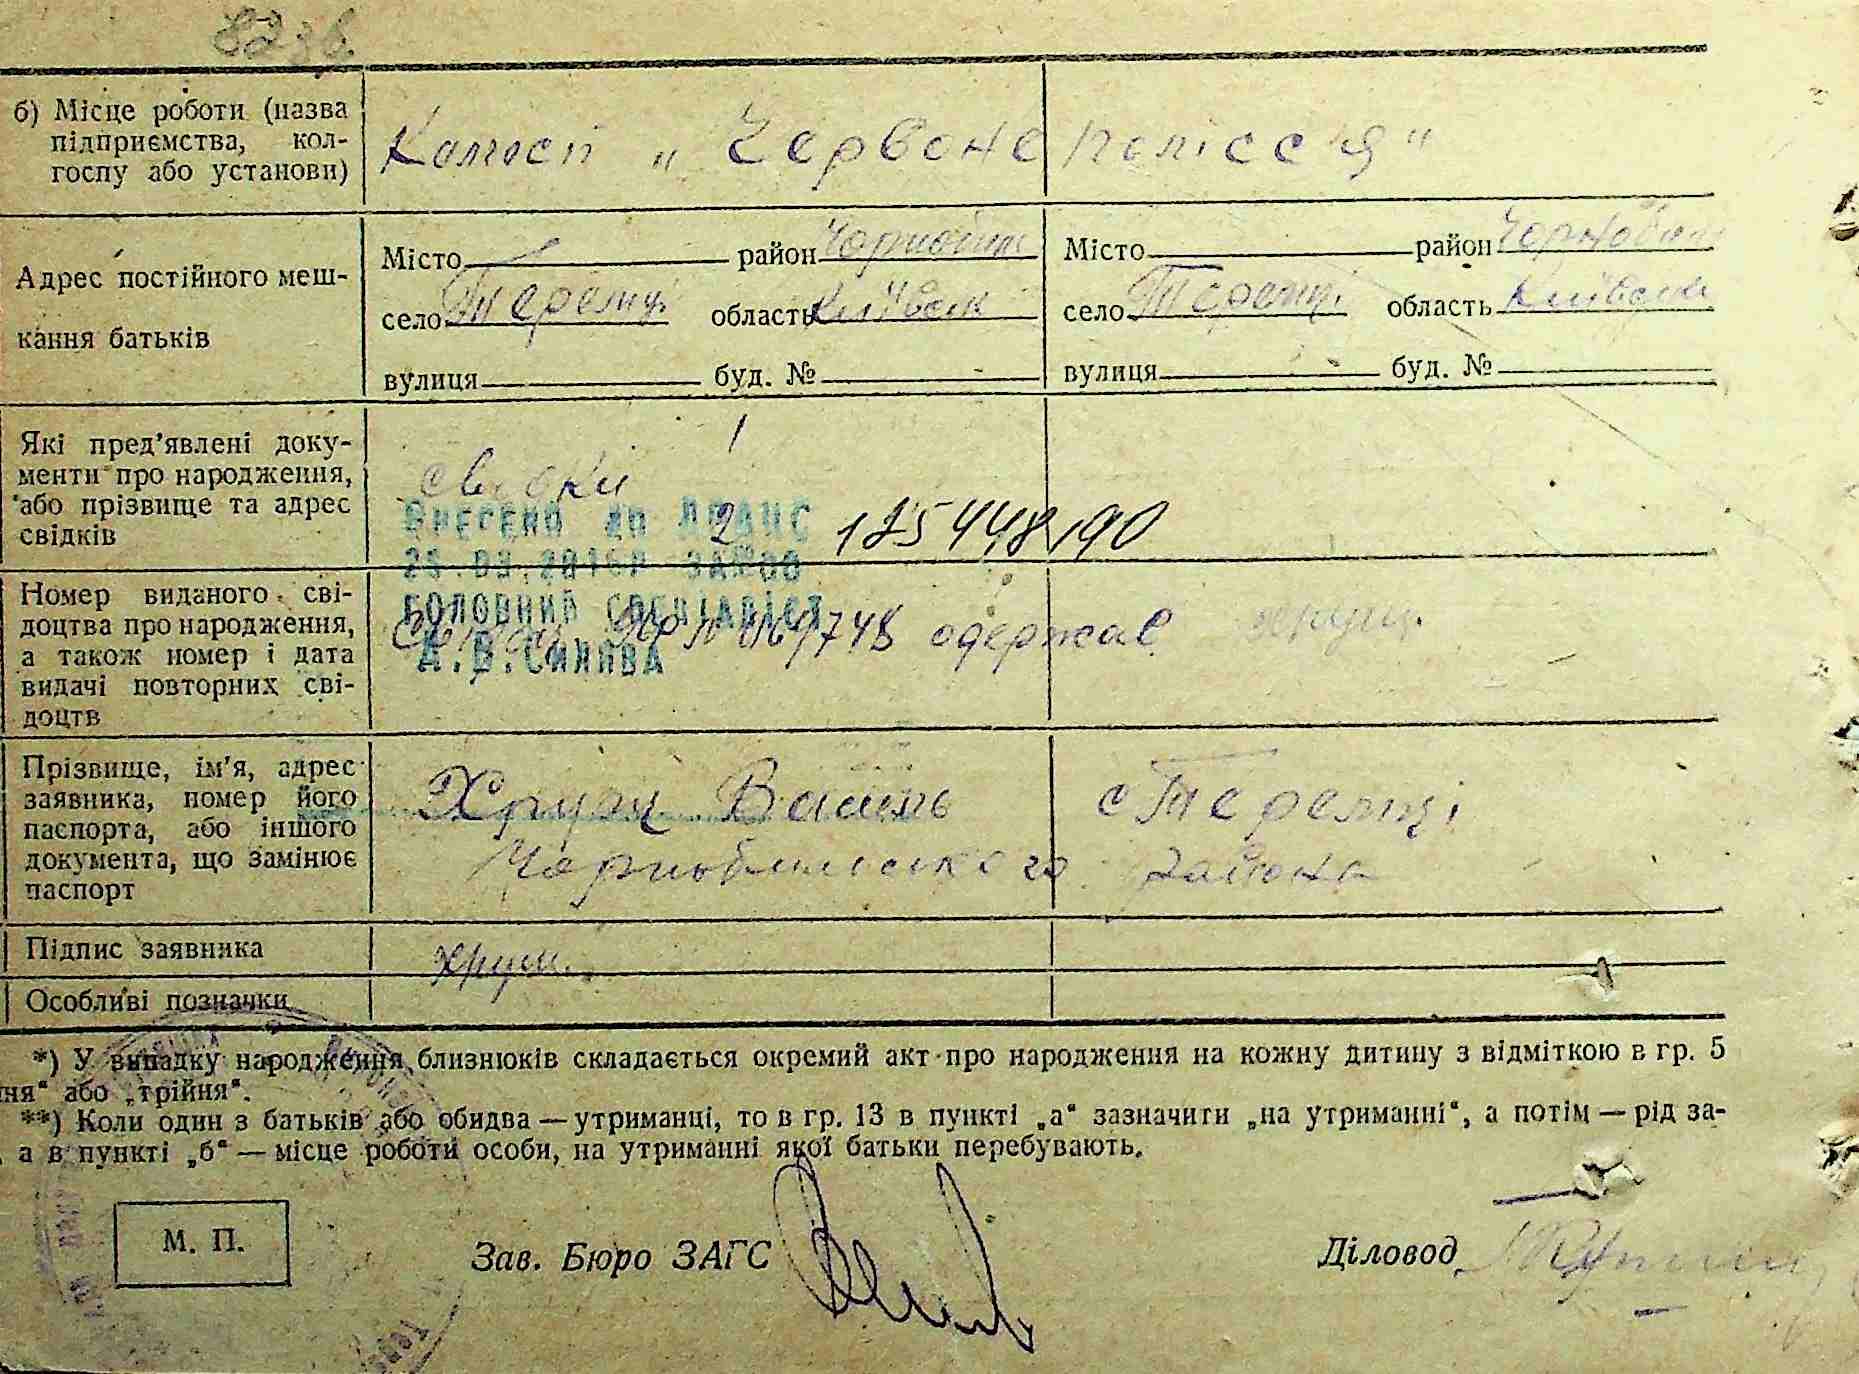 82 зв.
б) Місце роботи (назва
підприємства, кол-
госпу або установи)
Колгосп „Червоне полісся“
Адрес постійного меш-
кання батьків
Місто район Чорнобил
село Теремці область Київськ
вулиця буд. №
Місто район Чорнобил
село Теремці область Київськ
вулиця буд. №
Які пред'явлені доку-
менти про народження,
або прізвище та адрес
свідків
1
свідки
2
ВНЕСЕНО ДО ДРАЦС
ГОЛОВНИЙ СПЕЦІАЛІСТ
Номер виданого сві-
доцтва про народження,
а також номер і дата
видачі повторних сві-
доцтв
одержав
Прізвище, ім'я, адрес
заявника, номер його
паспорта, або іншого
документа, що замінює
паспорт
Хрущ с Теремці
Чорнобильського району
Підпис заявника
Хрущ.
Особливі позначки
*) У випадку народження близнюків складається окремий акт про народження на кожну дитину з відміткою в гр. 5
ня“ або „трійня“.
**) Коли один з батьків або обидва — утриманці, то в гр. 13 в пункті „а“ зазначити „на утриманні“, а потім — рід за-
а в пункті „б“ — місце роботи особи, на утриманні якої батьки перебувають.
М. П.
Зав. Бюро ЗАГС
Діловод